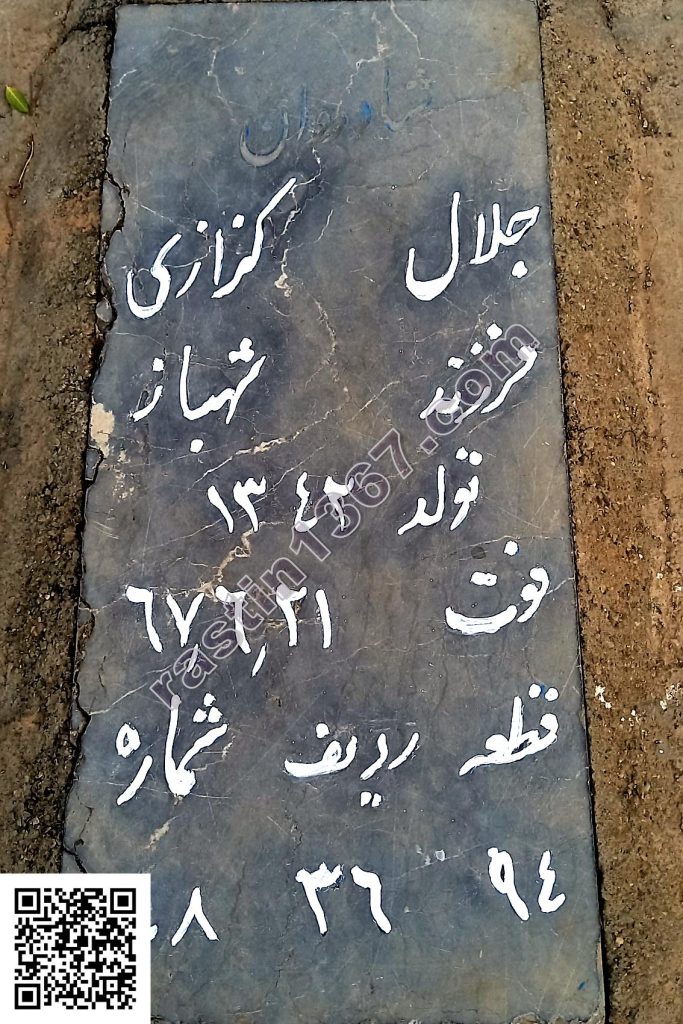 شادروان
جلال کزازی
فرزند شهباز
تولد ۱۳۴۲
فوت ۶۷٫۶٫۲۱
قطعه ردیف شماره
۹۴ ۳۶ ۸
rastin1367.com